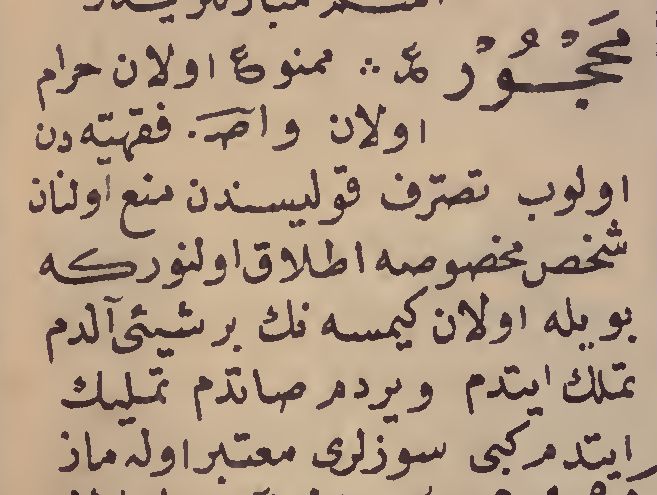 مَحْجُوْرْ عـ ∴ ممنوع اولان حرام
اولان واصـ. فقهیّه دن
اولوب تصرّف قوليسندن منع اولنان
شخص مخصوصه اطلاق اولنورکه
بويله اولان كيمسه نك بر شيئى آلدم
تملك ايتدم ويردم صاتدم تمليك
ايتدم كبى سوزلرى معتبر اوله ماز